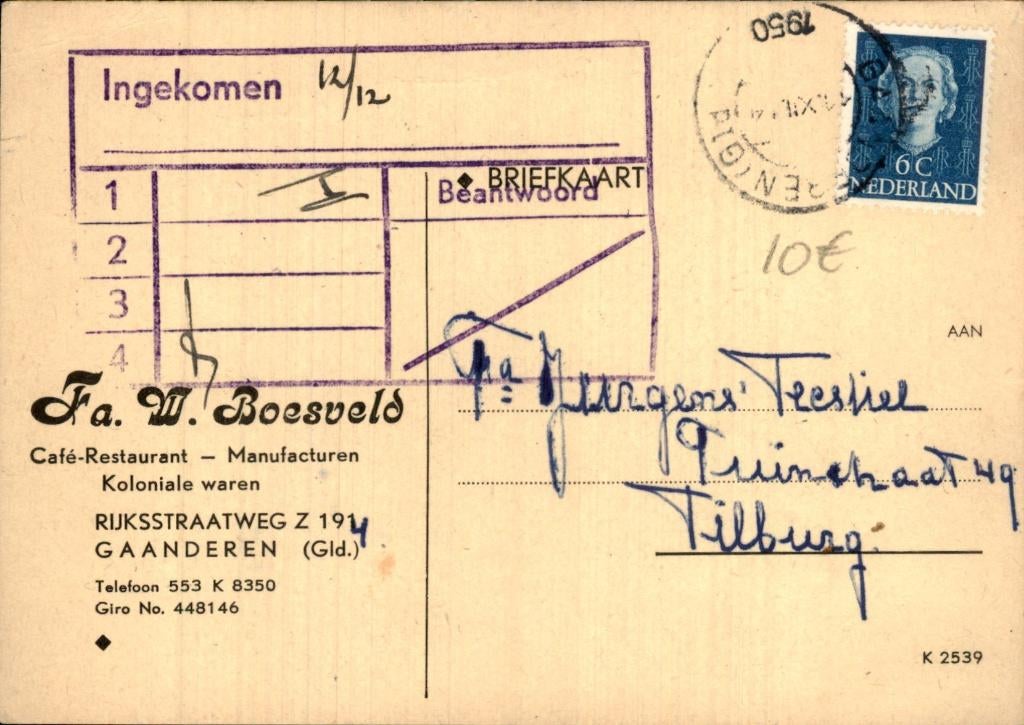 Ingekomen 12/12
1
2
3
4
Beantwoord
BRIEFKAART
1950
GA EREN (Gld
XII.14
6 C
NEDERLAND
10€
Fa. W. Boesveld
Café-Restaurant – Manufacturen
Koloniale waren
RIJKSSTRAATWEG Z 191 4
GAANDEREN (Gld.)
Telefoon 553 K 8350
Giro No. 448146
AAN
Fa Jurgens' Texstiel
Tuinstraat 49
Tilburg.
K 2539